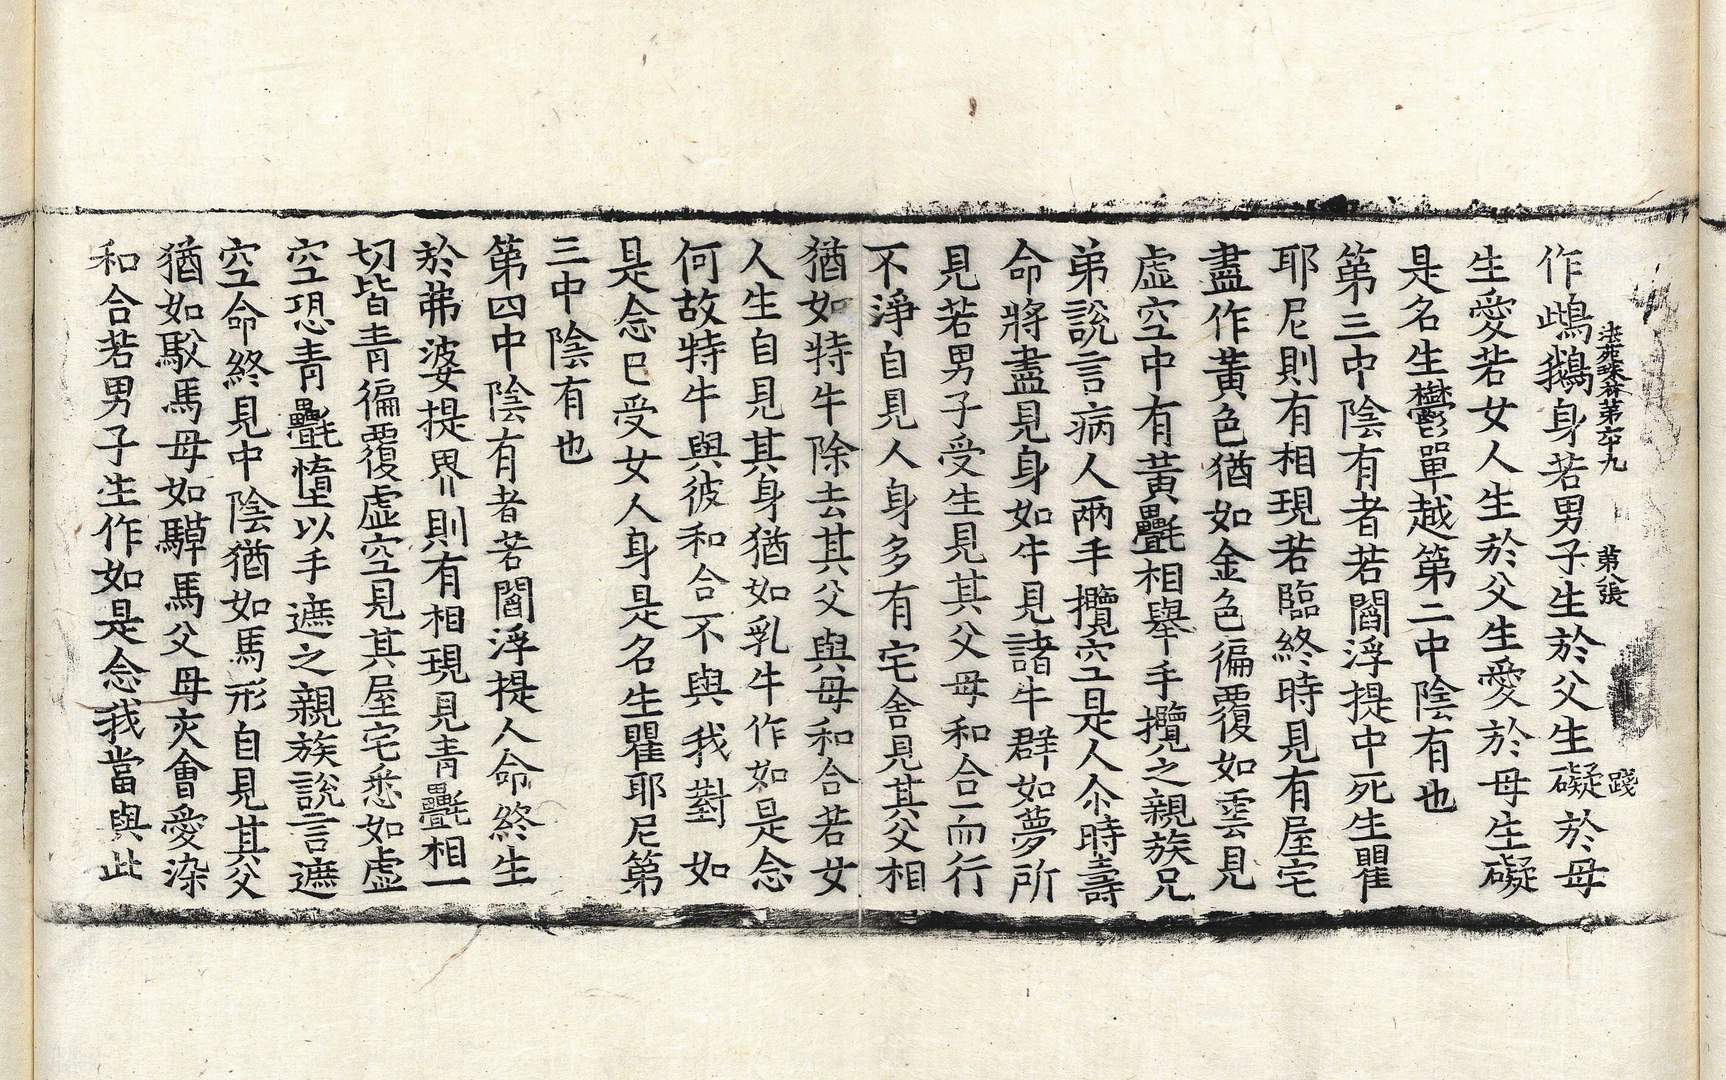 法苑珠林第六十九 第八張 踐
作鴟鵝身若男子生於父生礙於母
生愛若女人生於父生愛於母生礙
是名生欝單越第二中陰有也
第三中陰有者若閻浮提中死生瞿
耶尼則有相現若臨終時見有屋宅
盡作黃色猶如金色徧覆如雲見
虛空中有黃㲲相舉手攬之親族兄
弟說言病人兩手攬空是人尒時壽
命將盡見身如牛見諸牛群如夢所
見若男子受生見其父母和合而行
不淨自見人身多有宅舍見其父相
猶如特牛除去其父與母和合若女
人生自見其身猶如乳牛作如是念
何故特牛與彼和合不與我對如
是念已受女人身是名生瞿耶尼第
三中陰有也
第四中陰有者若閻浮提人命終生
於弗婆提界則有相現見青㲲相一
切皆青徧覆虛空見其屋宅悉如虛
空恐青㲲墮以手遮之親族說言遮
空命終見中陰猶如馬形自見其父
猶如駁馬母如騲馬父母交會愛染
和合若男子生作如是念我當與此